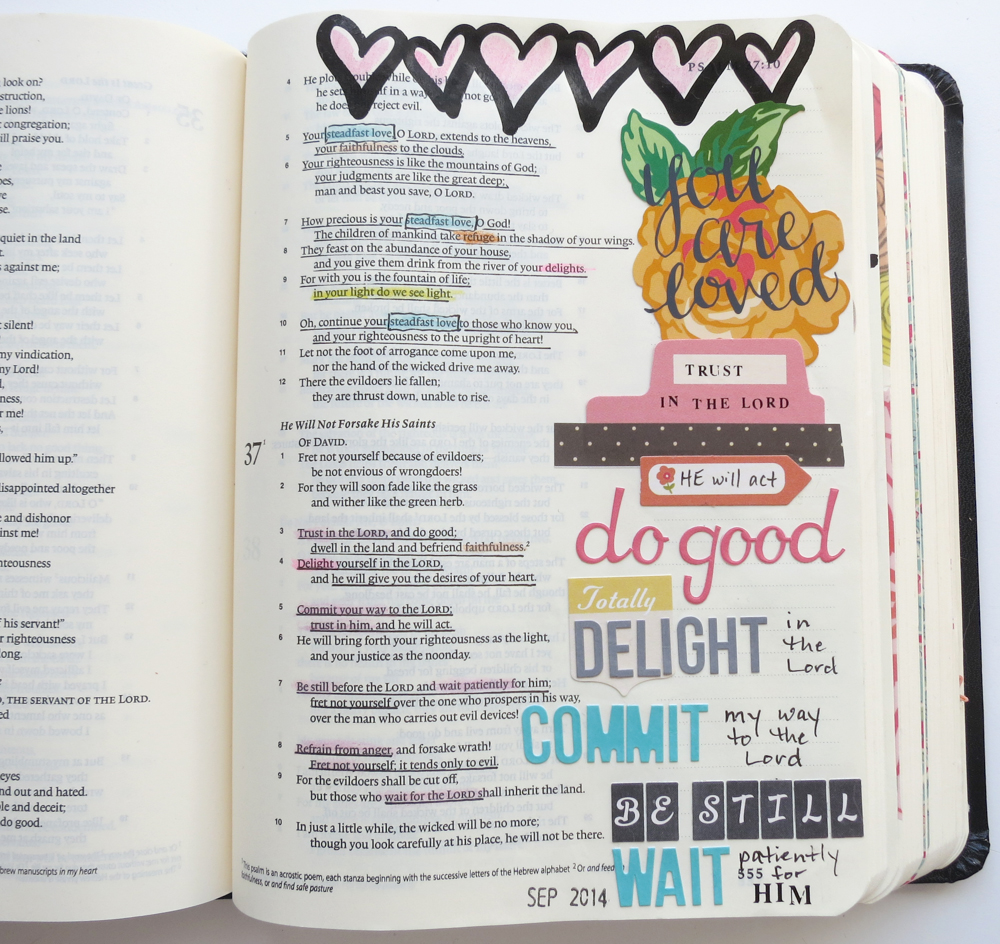 look on?
struction,
e lions!
congregation;
ill praise you.
quiet in the land
s against me;
silent!
my vindication,
ny Lord!
ness,
r me!
llowed him up."
isappointed altogether
e and dishonor
inst me!
hteousness
f his servant!"
r righteousness
long.
, THE SERVANT OF THE LORD.
eyes
nd out and hated.
ble and deceit;
do good.
brew manuscripts in my heart
PSALM 37:10
4 He plots trouble while his
he sets himself in a way not
he does reject evil.
5 Your steadfast love, O LORD, extends to the heavens,
your faithfulness to the clouds.
6 Your righteousness is like the mountains of God;
your judgments are like the great deep;
man and beast you save, O LORD.
7 How precious is your steadfast love, O God!
The children of mankind take refuge in the shadow of your wings.
8 They feast on the abundance of your house,
and you give them drink from the river of your delights.
9 For with you is the fountain of life;
in your light do we see light.
10 Oh, continue your steadfast love to those who know you,
and your righteousness to the upright of heart!
11 Let not the foot of arrogance come upon me,
nor the hand of the wicked drive me away.
12 There the evildoers lie fallen;
they are thrust down, unable to rise.
He Will Not Forsake His Saints
37¹ OF DAVID.
1 Fret not yourself because of evildoers;
be not envious of wrongdoers!
2 For they will soon fade like the grass
and wither like the green herb.
3 Trust in the LORD, and do good;
dwell in the land and befriend faithfulness.²
4 Delight yourself in the LORD,
and he will give you the desires of your heart.
5 Commit your way to the LORD;
trust in him, and he will act.
6 He will bring forth your righteousness as the light,
and your justice as the noonday.
7 Be still before the LORD and wait patiently for him;
fret not yourself over the one who prospers in his way,
over the man who carries out evil devices!
8 Refrain from anger, and forsake wrath!
Fret not yourself; it tends only to evil.
9 For the evildoers shall be cut off,
but those who wait for the LORD shall inherit the land.
10 In just a little while, the wicked will be no more;
though you look carefully at his place, he will not be there.
¹ This psalm is an acrostic poem, each stanza beginning with the successive letters of the Hebrew alphabet ² Or and feed
faithfulness, or and find safe pasture
you
are
loved
TRUST
IN THE LORD
HE will act
do good
Totally
DELIGHT in
the
Lord
COMMIT my way
to the
Lord
BE STILL
WAIT patiently
555 for
HIM
SEP 2014